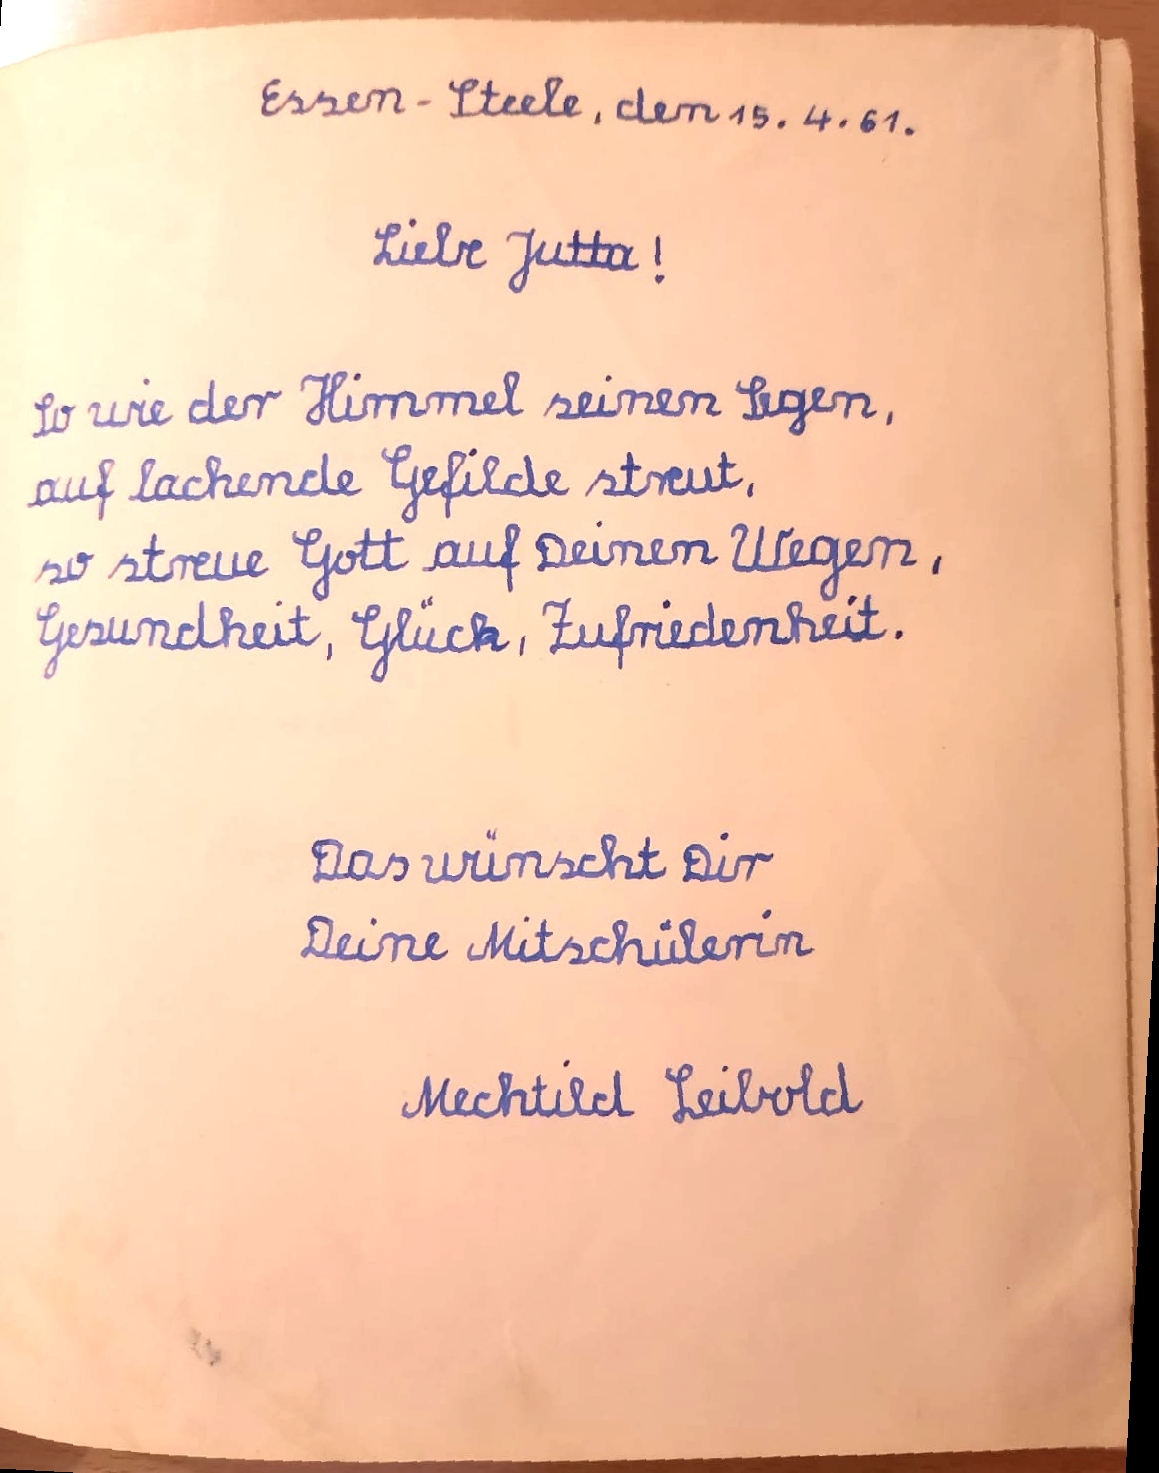 Essen - Steele, den 15. 4. 61.
Liebe Jutta !
So wie der Himmel seinen Segen,
auf lachende Gefilde streut,
so streue Gott auf Deinen Wegen,
Gesundheit, Glück, Zufriedenheit.
Das wünscht Dir
Deine Mitschülerin
Mechtild Leibold